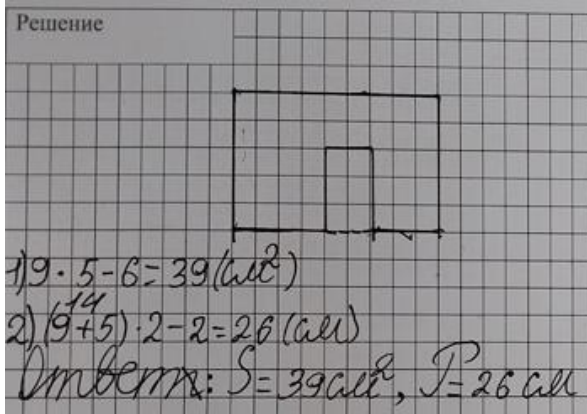 Решение
1) 9 · 5 - 6 = 39 (см²)
14
2) (9 + 5) · 2 - 2 = 26 (см)
Ответ: S = 39 см², P = 26 см